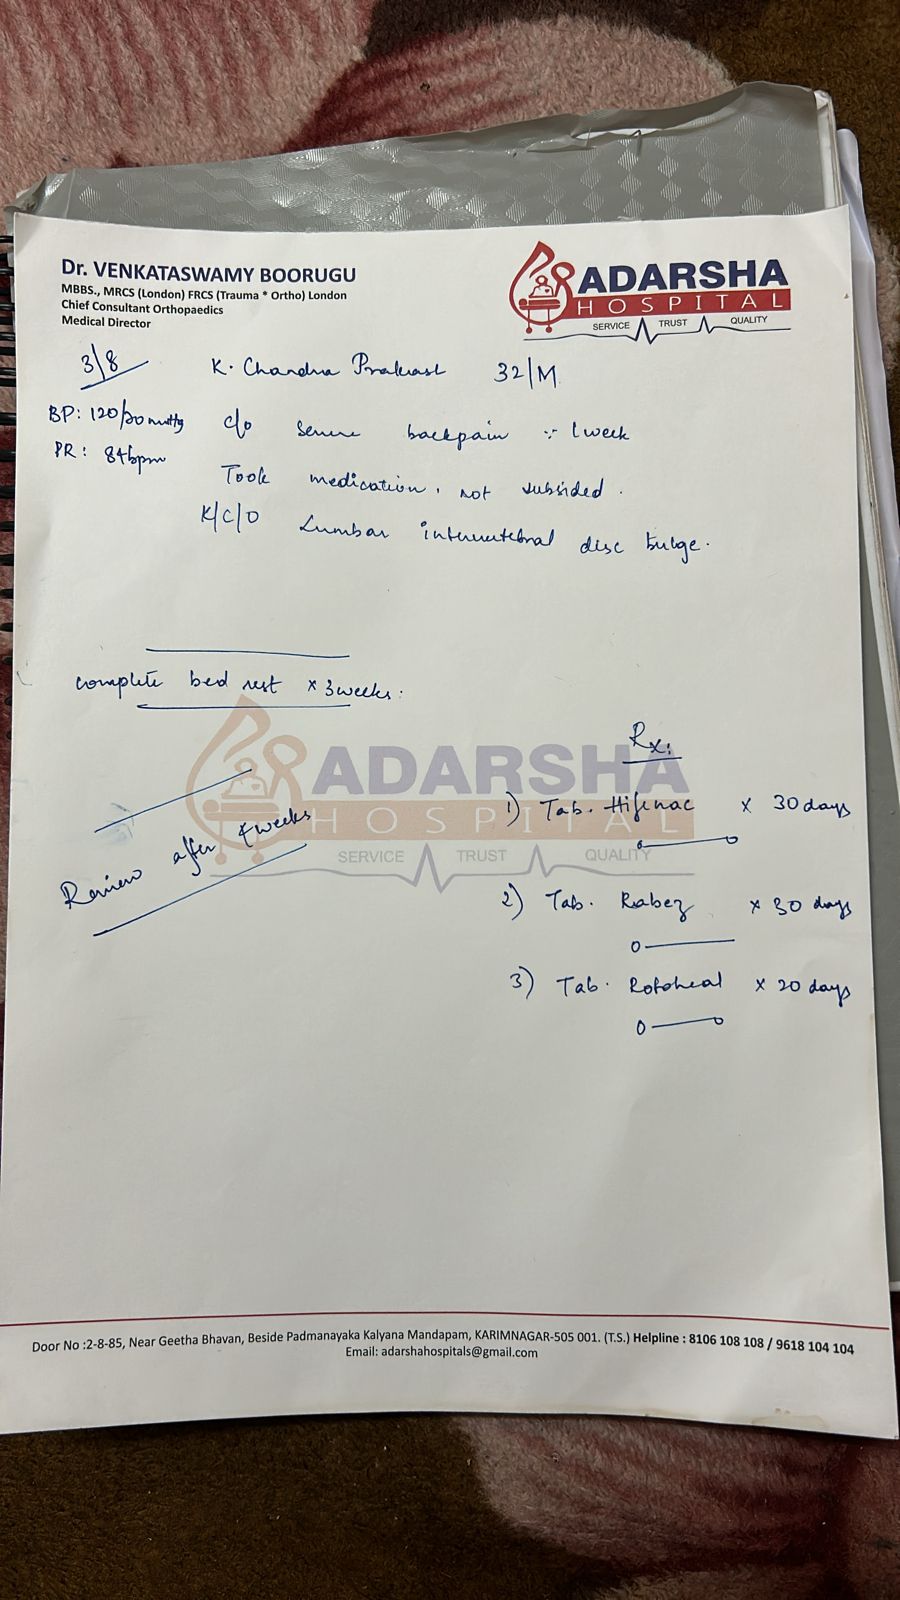 Dr. VENKATASWAMY BOORUGU
MBBS., MRCS (London) FRCS (Trauma * Ortho) London
Chief Consultant Orthopaedics
Medical Director
ADARSHA
HOSPITAL
SERVICE TRUST QUALITY
3/8 K. Chandra Prakash 32/M
BP: 120/80 mmHg c/o severe backpain 1 week
PR: 84bpm
Took medication, not subsided.
K/C/O Lumbar intervertebral disc bulge.
complete bed rest × 3 weeks.
Rx:
ADARSHA
HOSPITAL
SERVICE TRUST QUALITY
1) Tab. Hifenac × 30 days
Review after weeks
2) Tab. Rabez × 30 days
3) Tab. Rotoheal × 20 days
Door No :2-8-85, Near Geetha Bhavan, Beside Padmanayaka Kalyana Mandapam, KARIMNAGAR-505 001. (T.S.) Helpline : 8106 108 108 / 9618 104 104
Email: adarshahospitals@gmail.com